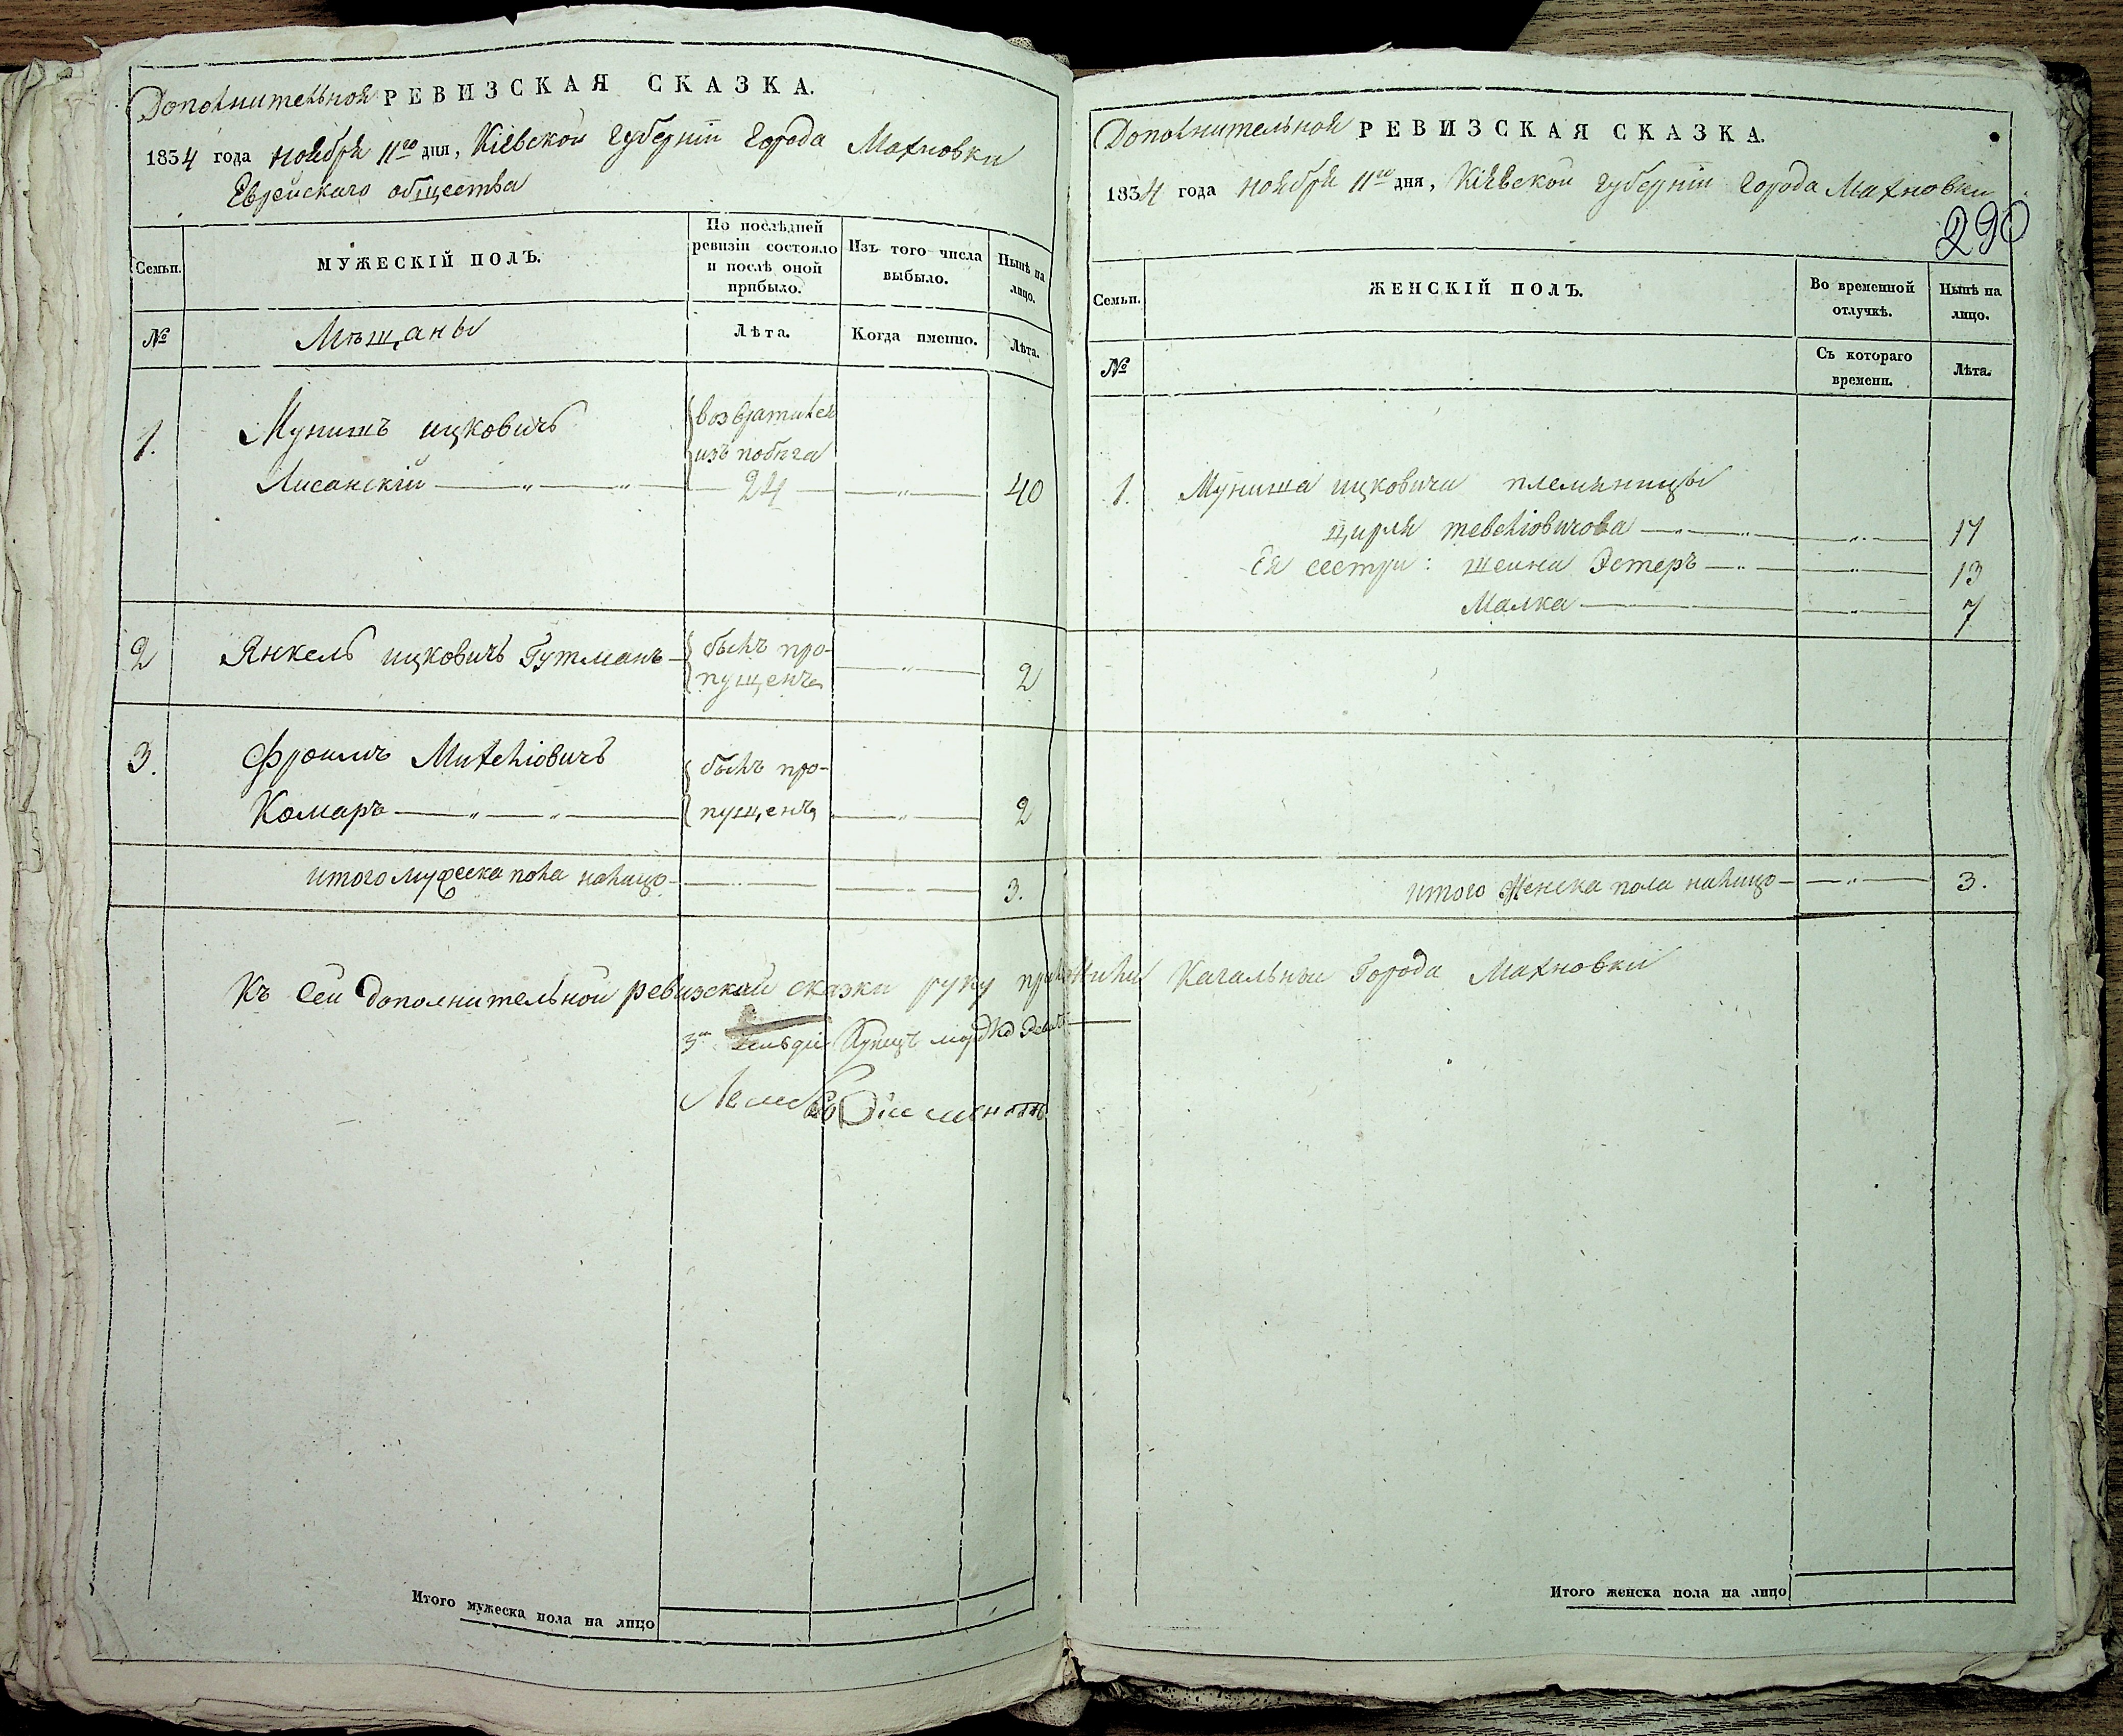 Дополнительной РЕВИЗСКАЯ СКАЗКА.
1834 года ноября 11го дня, Кіевской Губерніи Города Махновки
Еврейскаго общества
Семьи.
МУЖЕСКІЙ ПОЛЪ.
По послѣдней
ревизіи состояло
и послѣ оной
прибыло.
Изъ того числа
выбыло.
Нынѣ на
лицо.
№
Мѣщаны
Лѣта.
Когда именно.
Лѣта.
1.
Мунишъ ицковичъ
возвратился
изъ побѣга
Лисанскій 24 40
2 Янкель ицковичъ Гутманъ
былъ про-
пущенъ 2
3. Фроимъ Михеліовичъ
былъ про-
Комаръ пущенъ 2
итого мужеска пола налицо 3.
Къ Сей дополнительной ревизской сказки руку приложили Кагальныи Города Махновки
3й Купецъ
Дополнительной РЕВИЗСКАЯ СКАЗКА.
1834 года ноября 11го дня, Кіевской губерніи Города Махновки
290
Семьи.
ЖЕНСКІЙ ПОЛЪ.
Во временной
отлучкѣ.
Нынѣ на
лицо.
№
Съ котораго
времени.
Лѣта.
1. Муниша ицковича племяницы
Цирля тевеліовичова 17
Ея сестри: шеина Эстеръ 13
Малка 7
итого Женска пола налицо 3.
Итого мужеска пола на лицо
Итого женска пола на лицо